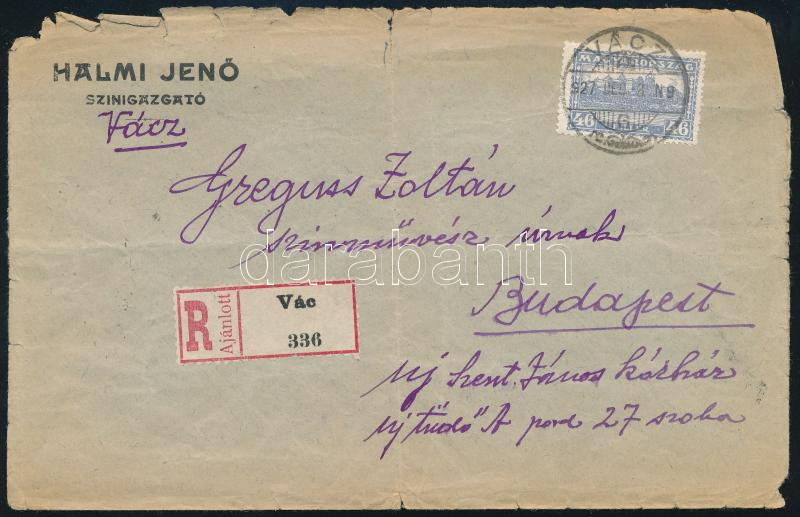 HALMI JENŐ
SZINIGAZGATÓ
Vácz
VÁCZ
MAGYARORSZÁG
927
46 46
Greguss Zoltán
szinművész úrnak
Budapest
R
Ajánlott
Vác
336
uj Szent János kórház
uj tüdő A 27 szoba
darabanth